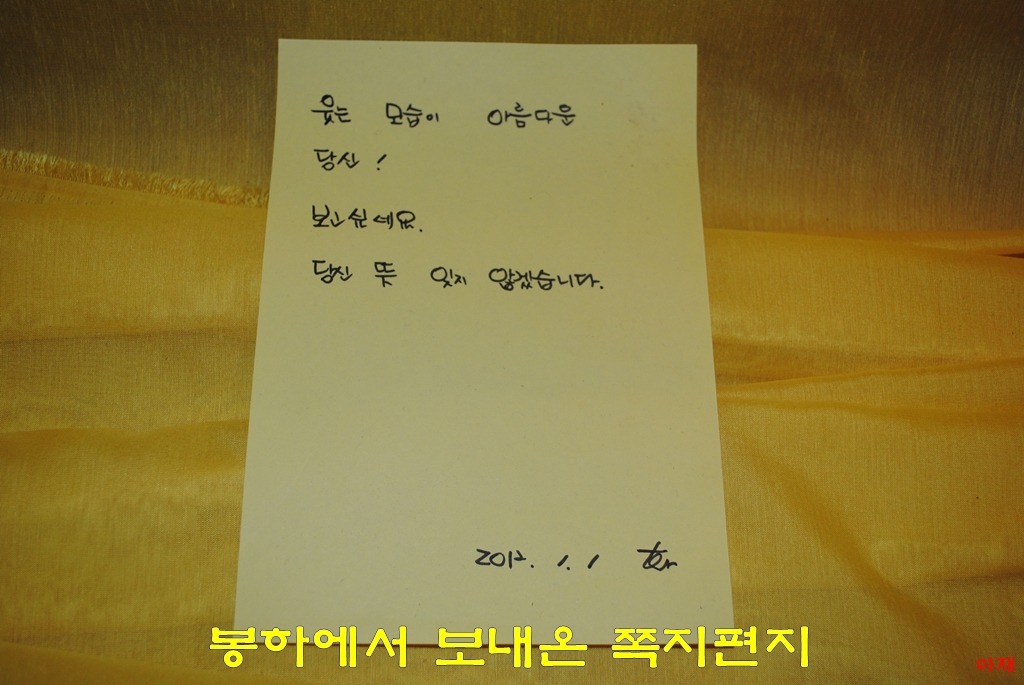 웃는 모습이 아름다운
당신!
보고싶네요.
당신 뜻 잊지 않겠습니다.
2012. 1. 1
봉하에서 보내온 쪽지편지